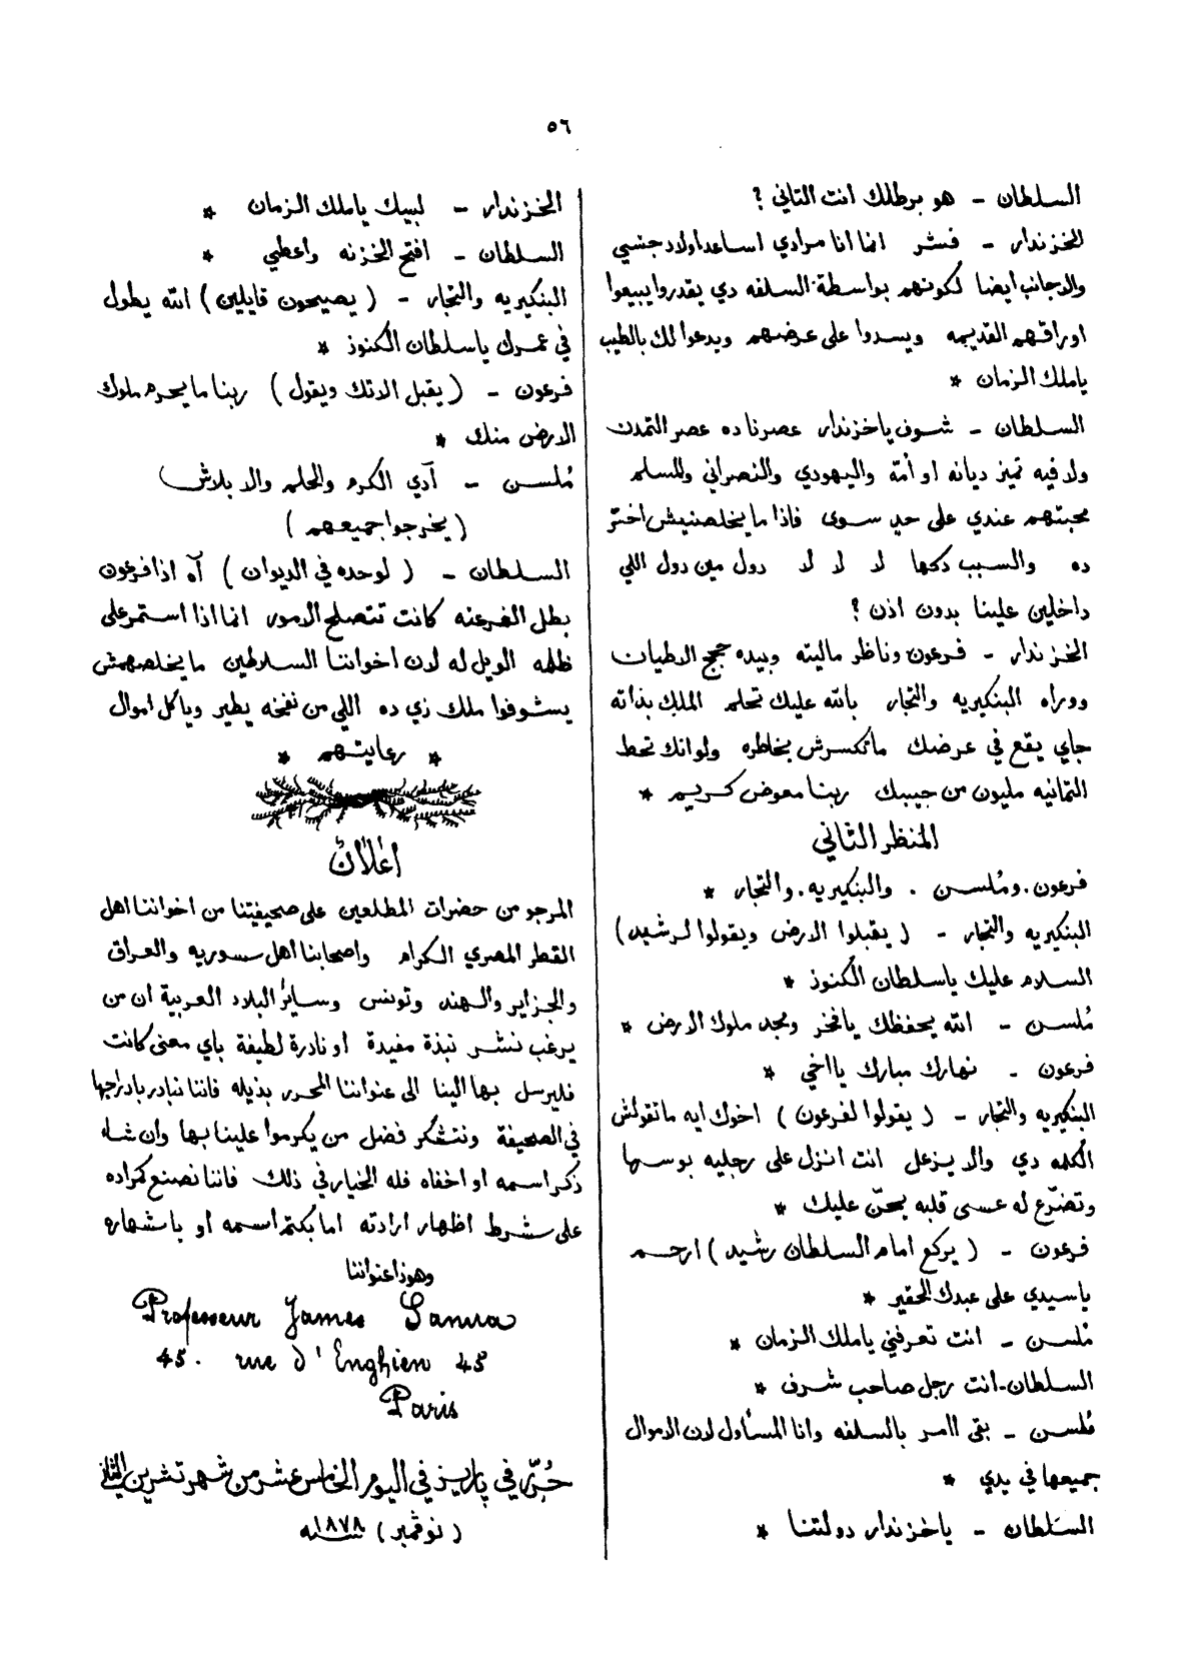 ٥٦
السلطان - هو برطلك انت التاني ؟
الخزندار - فشر انما انا مرادي اساعد اولاد جنسي
والاجانب ايضا لكونهم بواسطة السلفه دي يقدروا يبيعوا
اوراقهم القديمه ويسدوا على عرضهم ويدعوا لك بالطيب
ياملك الزمان *
السلطان - شوف ياخزندار عصرنا ده عصر التمدن
ولا فيه تميز ديانه او أمّة واليهودي والنصراني والمسلم
محبتهم عندي على حدٍ سوى فاذا ما يخلصنيش اختّر
ده والسبب دكها لا لا لا دول مين دول اللي
داخلين علينا بدون اذن ؟
الخزندار - فرعون وناظر ماليته وبيده حجج الاطيان
ووراه البنكيريه والتجار بالله عليك تحلم الملك بذاته
جاي يقع في عرضك ماتكسرش بخاطره ولو انك تحط
التمانيه مليون من جيبك ربنا معوض كريم *
المنظر الثاني
فرعون . ومُلسن . والبنكيريه . والتجار *
البنكيريه والتجار - ( يقبلوا الارض ويقولوا لرشيد )
السلام عليك ياسلطان الكنوز *
مُلسن - الله يحفظك يافخر ومجد ملوك الارض *
فرعون - نهارك مبارك يااخي *
البنكيريه والتجار - ( يقولوا لفرعون ) اخوك ايه ماتقولش
الكلمه دي والا يزعل انت انزل على رجليه بوسها
وتضرّع له عسى قلبه يحنّ عليك *
فرعون - ( يركع امام السلطان رشيد ) ارحم
ياسيدي على عبدك الحقير *
مُلسن - انت تعرفني ياملك الزمان *
السلطان - انت رجل صاحب شرف *
مُلسن - بقى اامر بالسلفه وانا المسأول لان الاموال
جميعها في يدي *
السلطان - ياخزندار دولتنا *
الخزندار - لبيك ياملك الزمان *
السلطان - افتح الخزنه واعطي *
البنكيريه والتجار - ( يصيحون قايلين ) الله يطول
في عمرك ياسلطان الكنوز *
فرعون - ( يقبل الاتك ويقول ) ربنا مايحرم ملوك
الارض منك *
مُلسن - آدي الكرم والحلم والا بلاش
( يخرجوا جميعهم )
السلطان - ( لوحده في الديوان ) آه اذا فرعون
بطل الفرعنه كانت تتصلح الامور انما اذا استمر على
ظلمه الويل له لان اخواننا السلاطين ما يخلصهمش
يشوفوا ملك زي ده اللي من نفخه يطير وياكل اموال
* رعايتهم *
اعلان
المرجو من حضرات المطلعين على صحيفيتنا من اخواننا اهل
القطر المصري الكرام واصحابنا اهل سوريه والعراق
والجزاير والهند وتونس وسائر البلاد العربية ان من
يرغب ننشر نبذة مفيدة او نادرة لطيفة باي معنى كانت
فليرسل بها الينا الى عنواننا المحرر بذيله فاننا نبادر بادراجها
في الصحيفة ونتشكر فضل من يكرموا علينا بها وان شاء
ذكر اسمه او اخفاه فله الخيار في ذلك فاننا نصنع كمراده
على شرط اظهار ارادته اما بكتم اسمه او باشهاره
وهوذا عنواننا
Professeur James Sanua
45. rue d'Enghien 45
Paris
حُرّر في پاريز في اليوم الخامس عشر من شهر تشرين الثاني
( نوڤمبر ) سنة ١٨٧٨